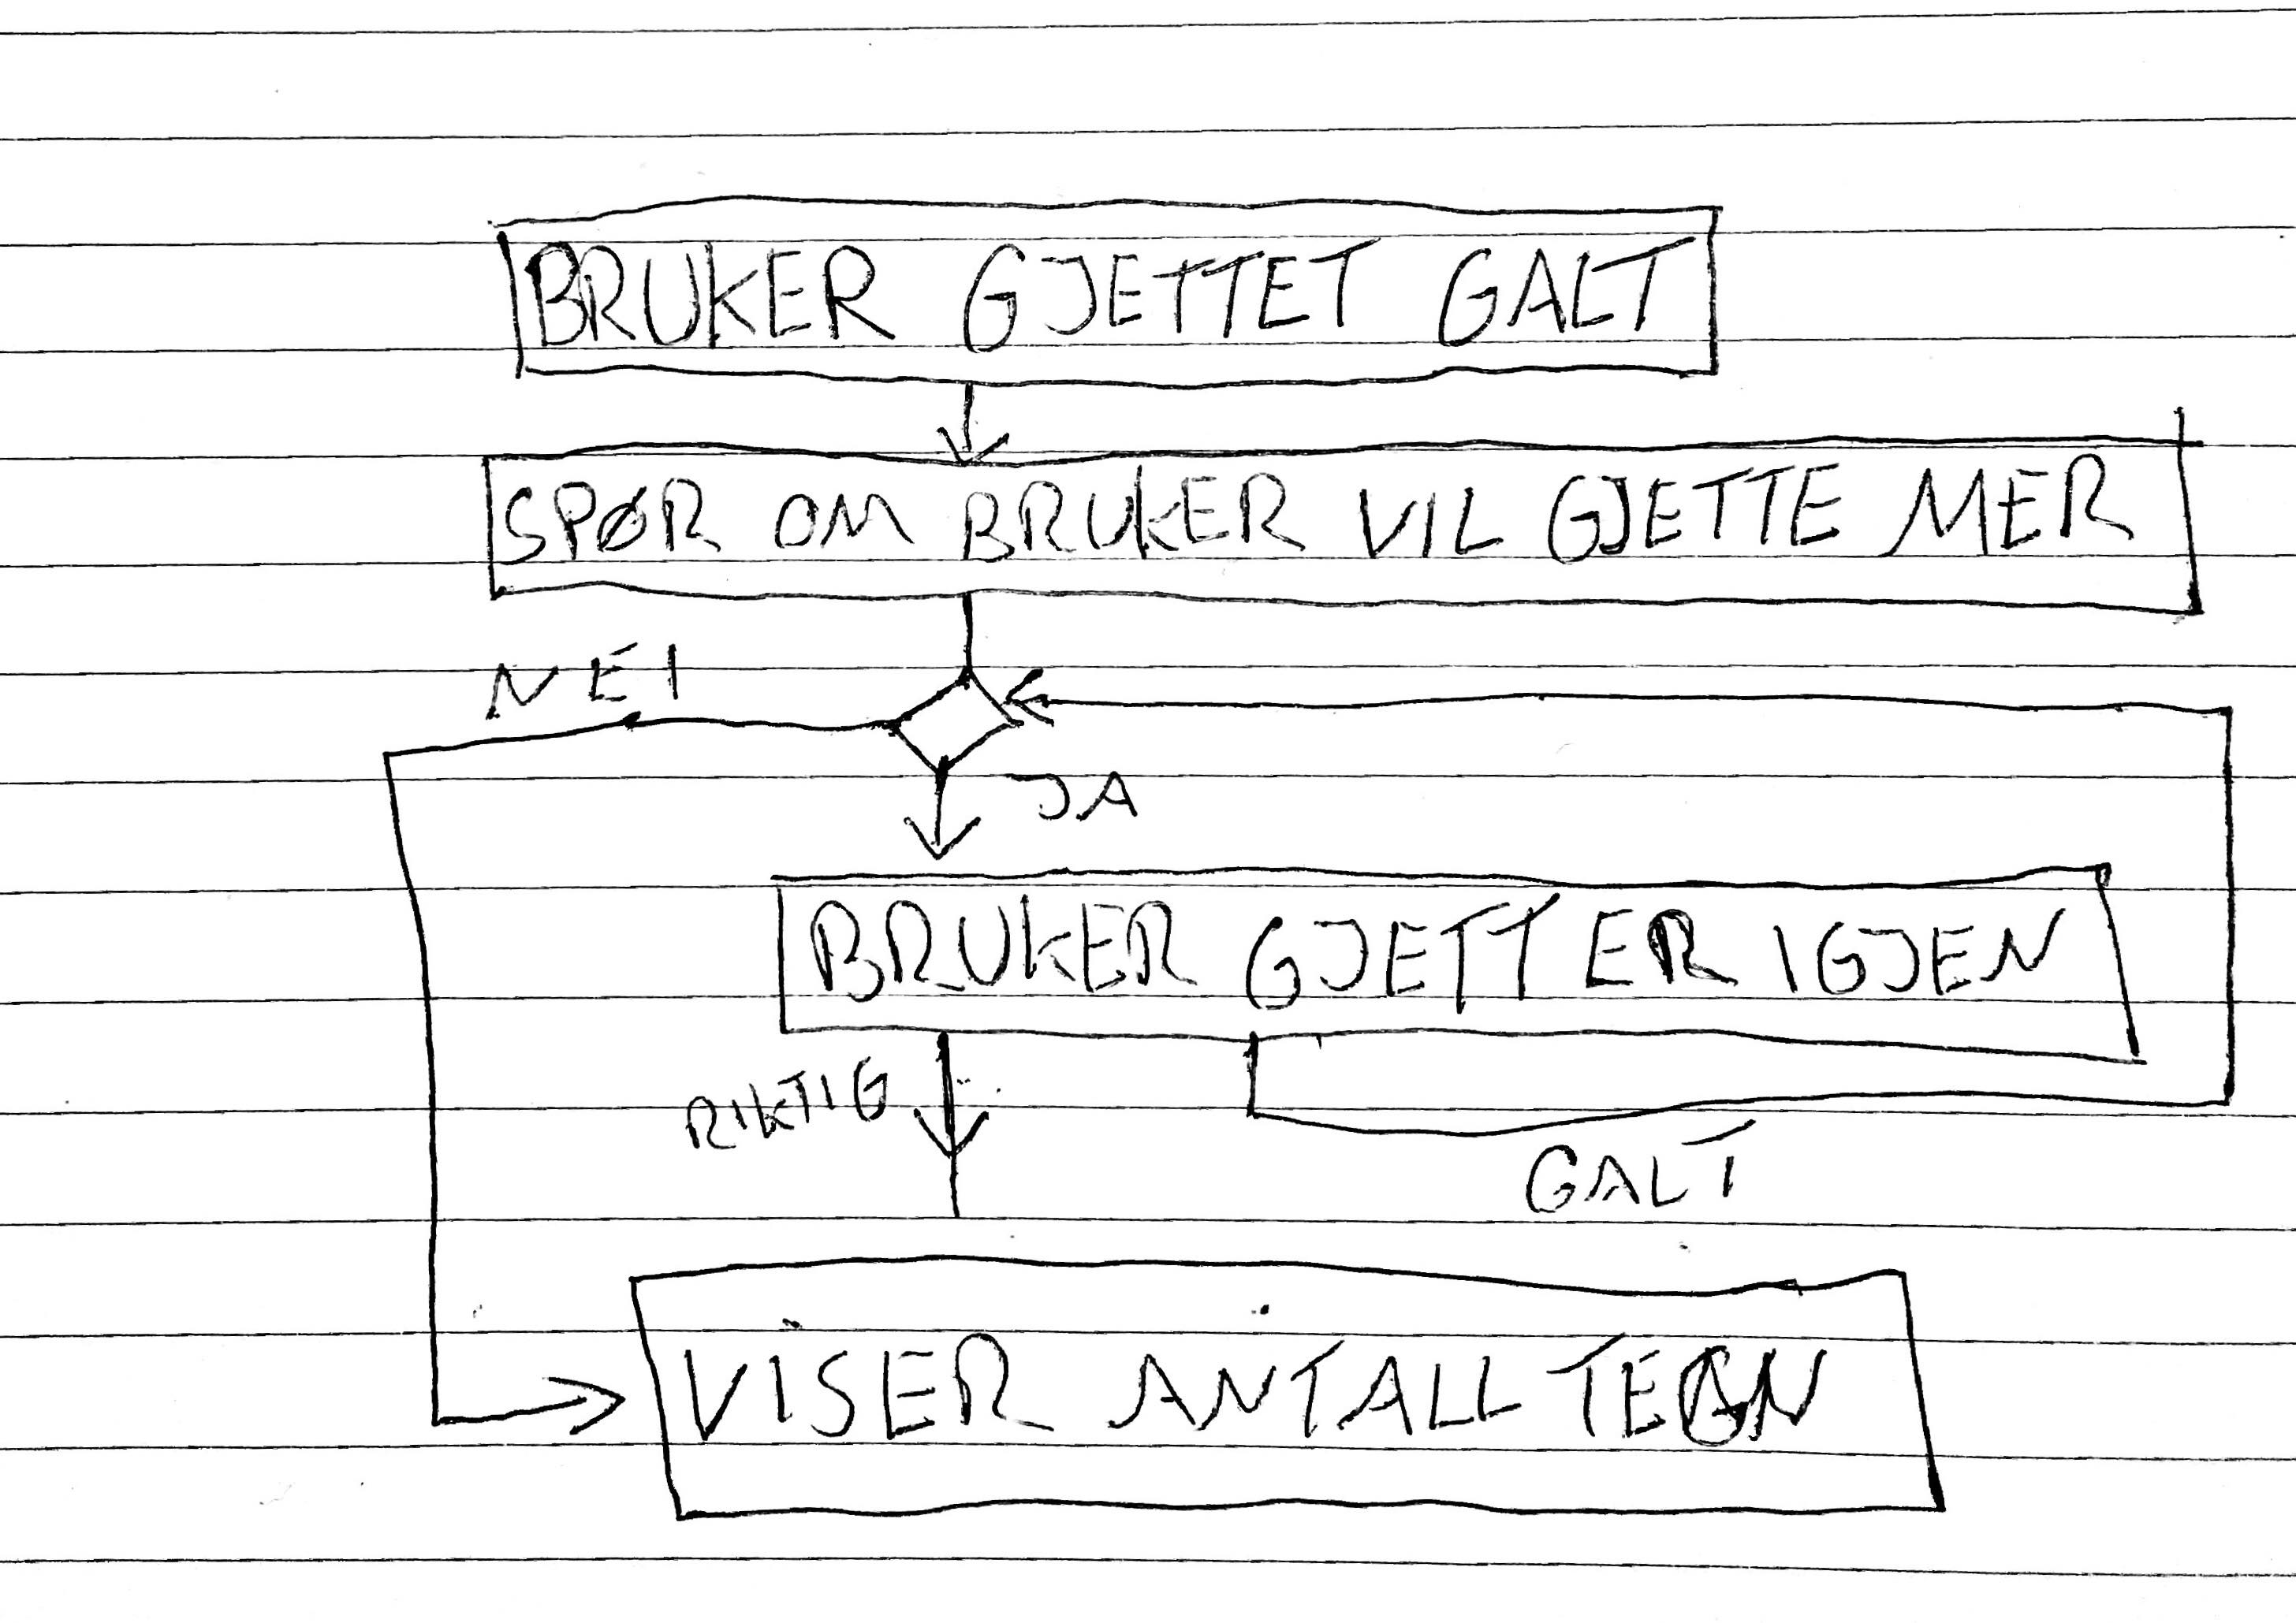 BRUKER GJETTET GALT
SPØR OM BRUKER VIL GJETTE MER
NEI
JA
BRUKER GJETTER IGJEN
RIKTIG
GALT
VISER ANTALL TEGN